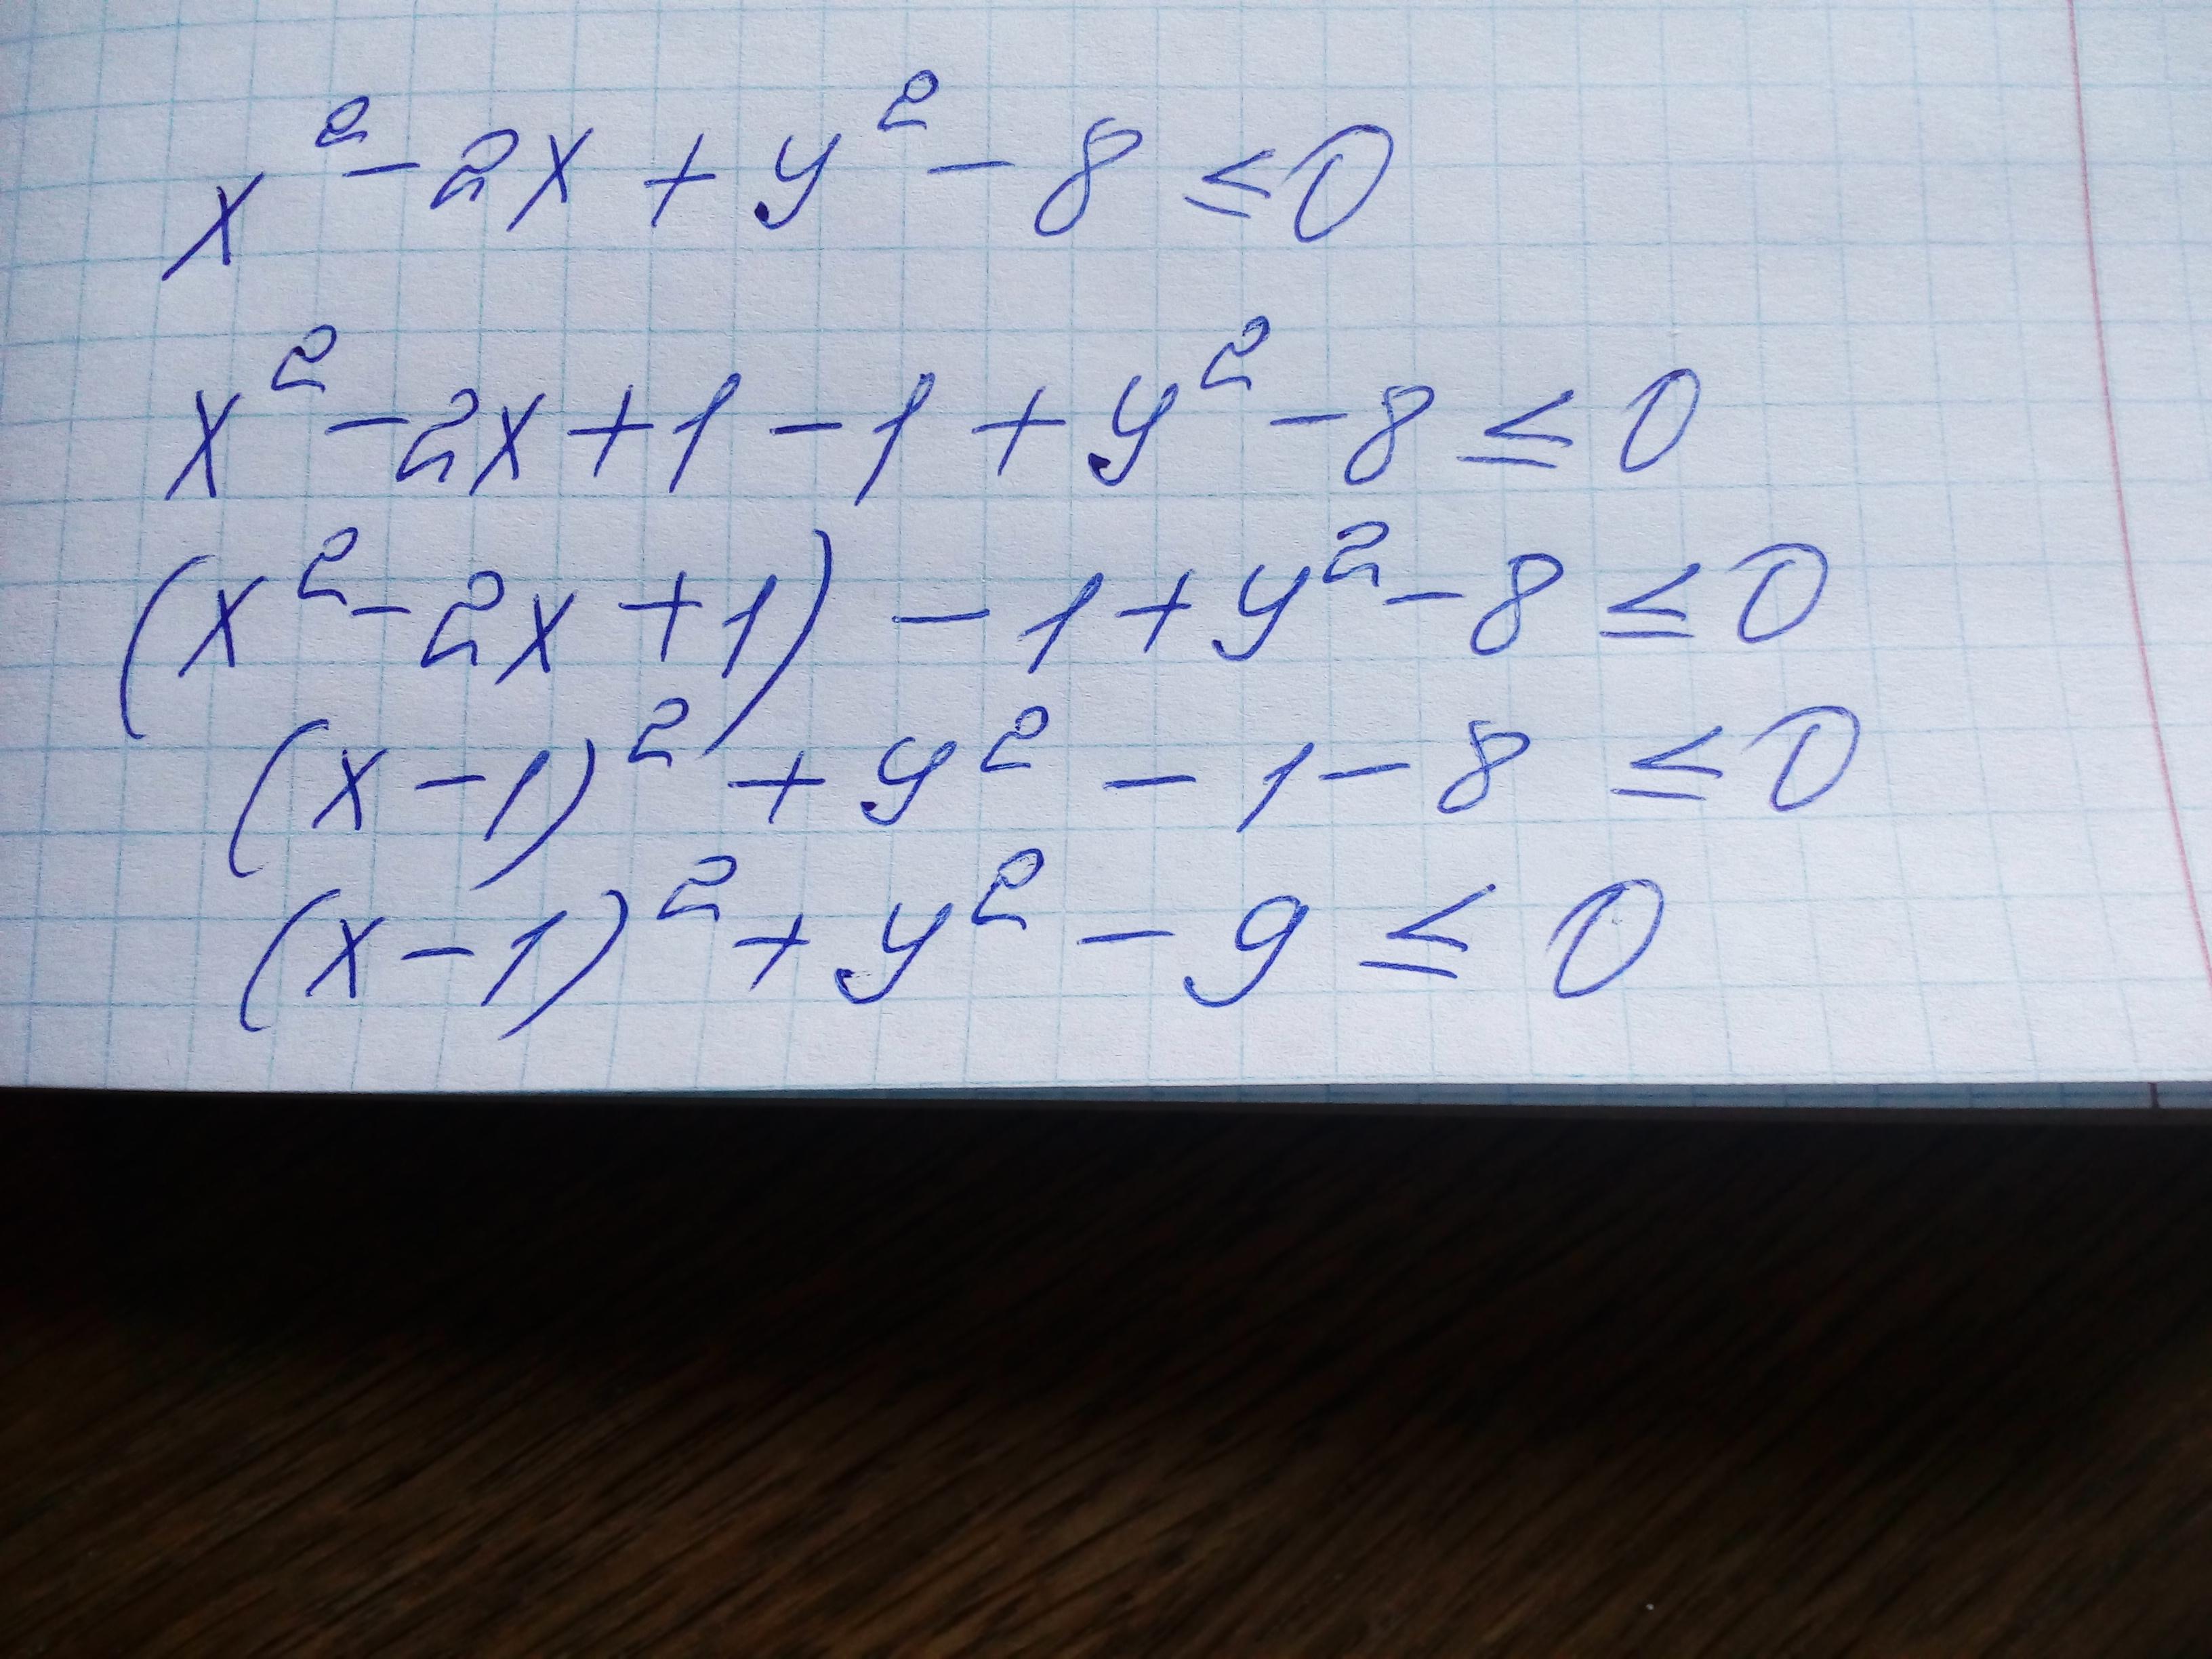 x² - 2x + y² - 8 ≤ 0
x² - 2x + 1 - 1 + y² - 8 ≤ 0
(x² - 2x + 1) - 1 + y² - 8 ≤ 0
(x - 1)² + y² - 1 - 8 ≤ 0
(x - 1)² + y² - 9 ≤ 0